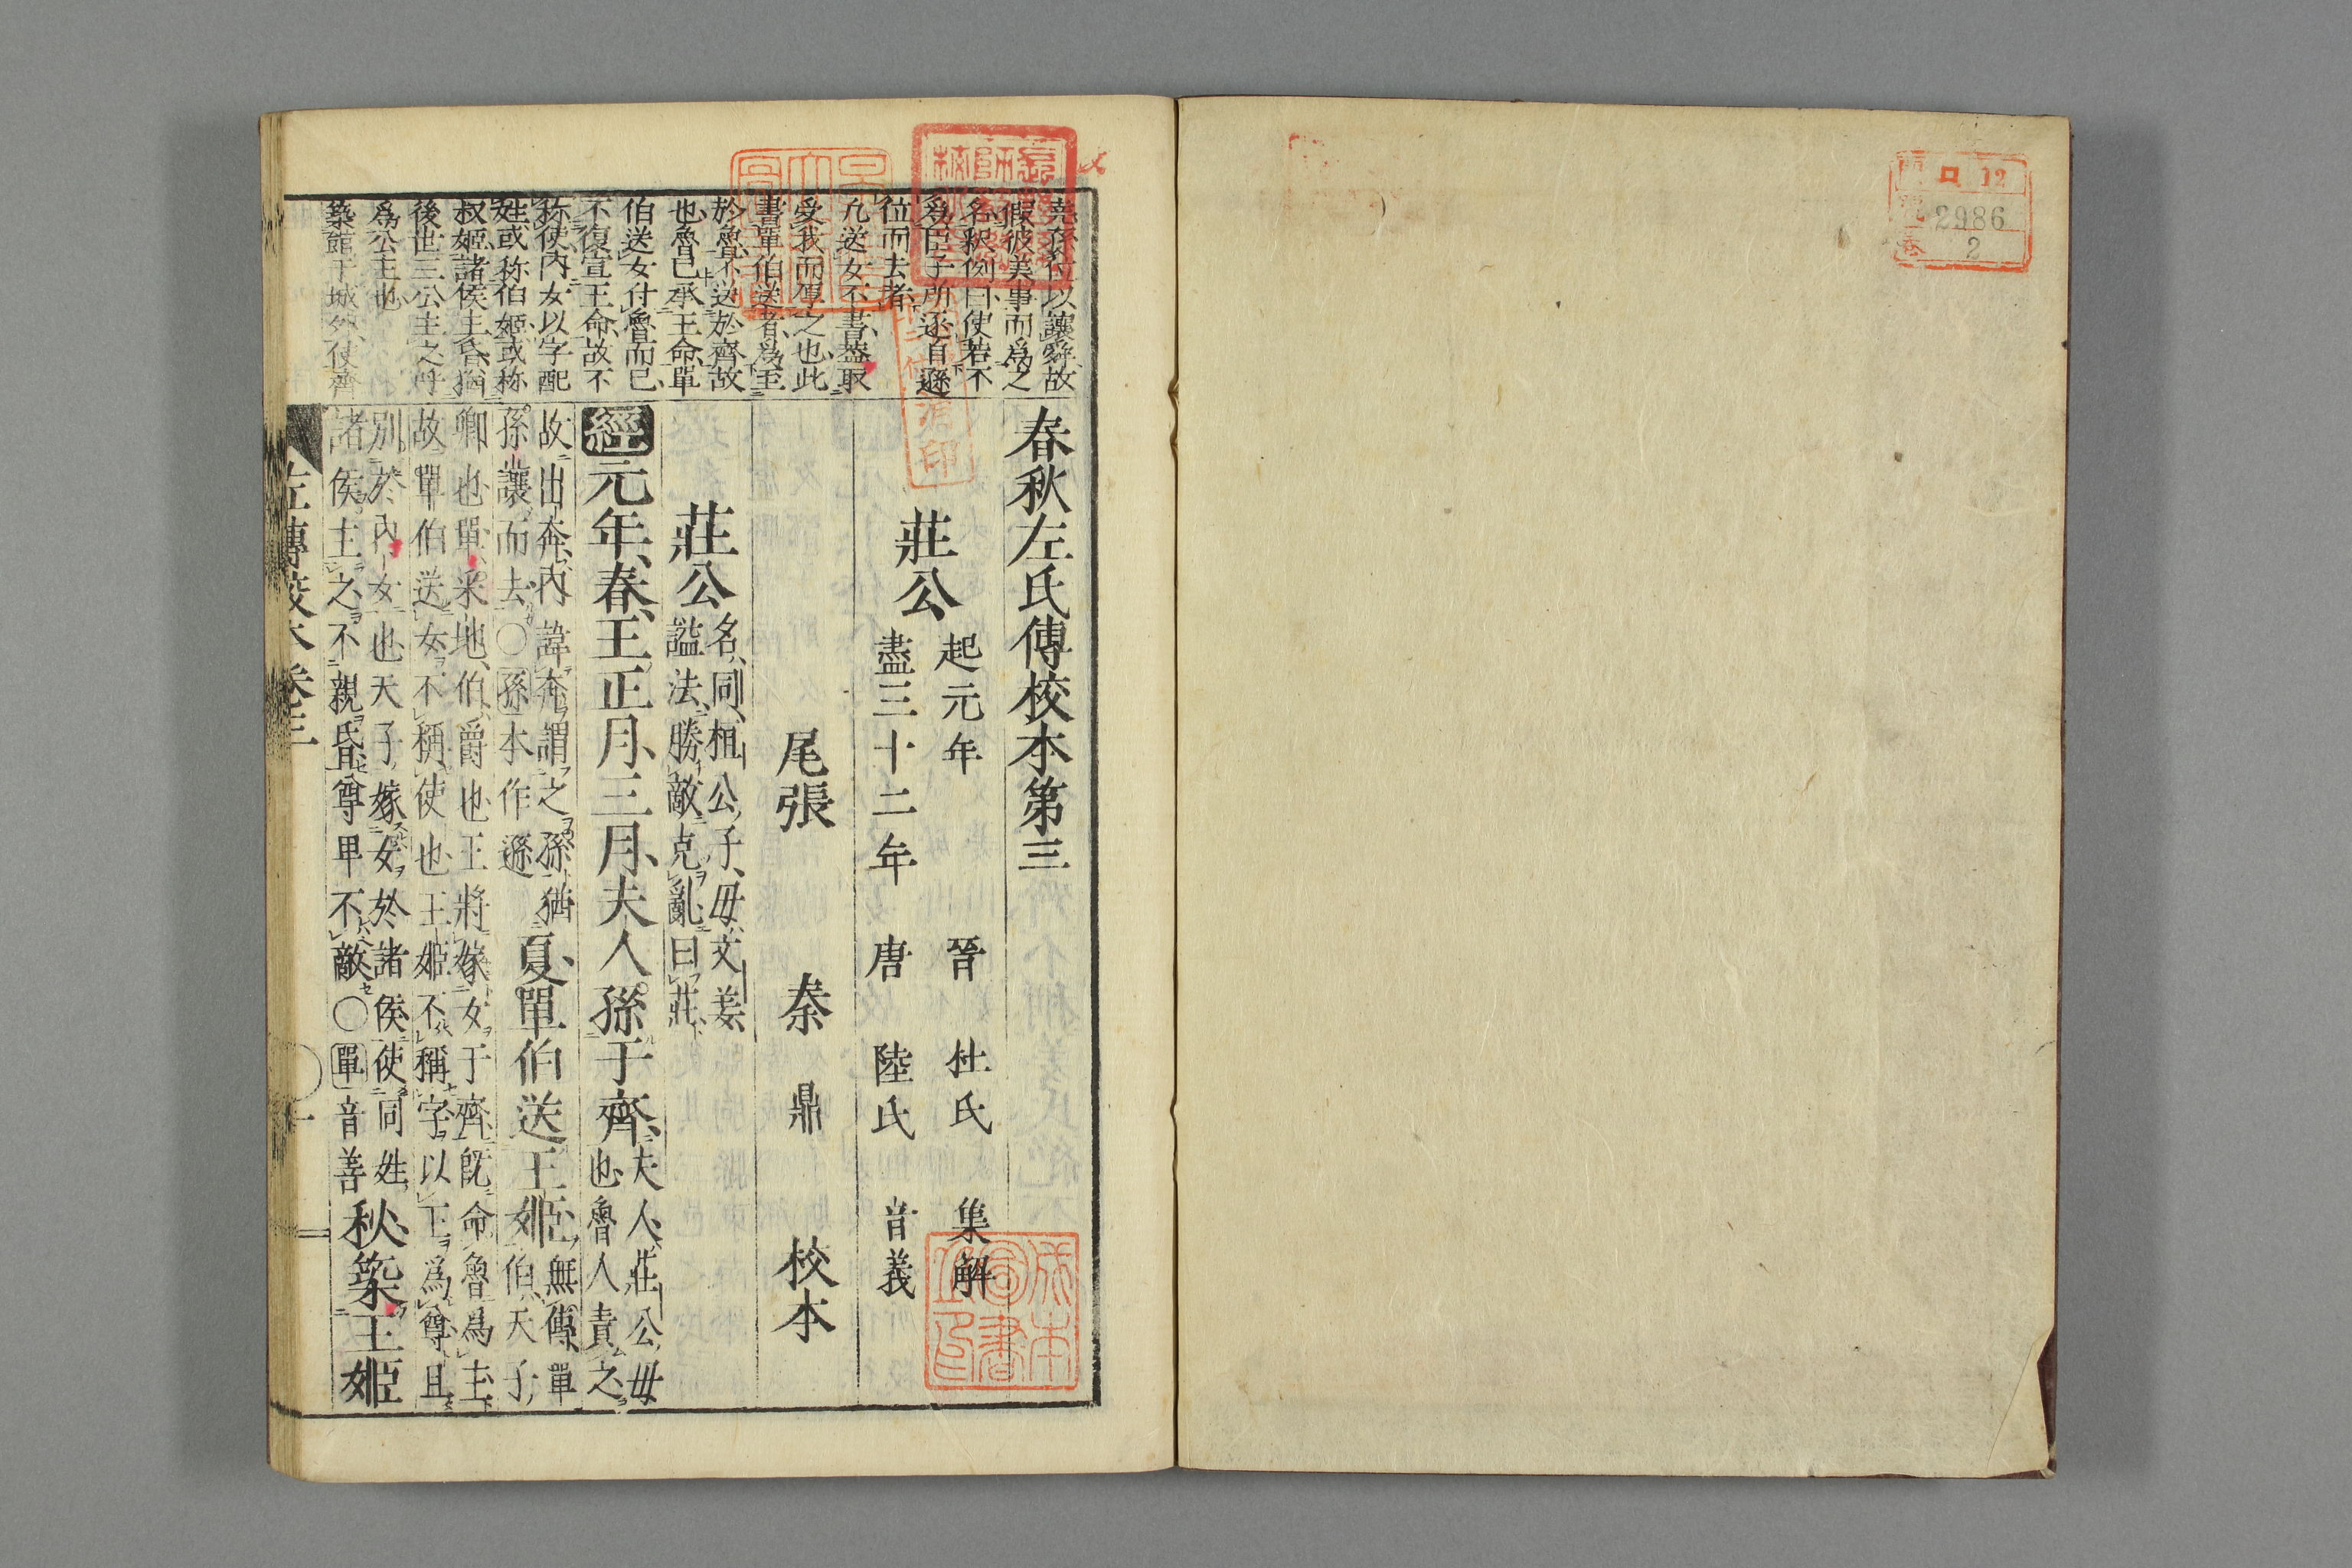 ロ 12
2986
2
堯孫位以讓舜故
假彼美事而爲之
名釈例曰使若不
爲臣子所逐自遜
位而去者
凡送女不書蓋取
受我而厚之也此
書單伯送者爲王
於魯不送於齊故
也魯已承王命單
伯送女付魯而已
不復宣王命故不
称使内女以字配
姓或称伯姬或称
叔姬諸侯主昏猶
後世三公主之呼
爲公主也
築館于城外使齊
春秋左氏傳校本第三
莊公
起元年
盡三十二年
晉 杜氏 集解
唐 陸氏 音義
尾張 秦 鼎 校本
莊公 名同桓公子母文姜
謚法勝敵克亂曰莊
經元年春王正月三月夫人孫于齊 夫人莊公母
也魯人責之
故出奔内諱奔謂之孫猶
孫讓而去〇孫本作遜
夏單伯送王姬 無傳單
伯天子
卿也單采地伯爵也王將嫁女于齊既命魯爲主
故單伯送女不稱使也王姬不稱字以王爲尊且
別於内女也天子嫁女於諸侯使同姓
諸侯主之不親昏尊卑不敵〇單音善
秋築王姬
左傳校本卷三
一